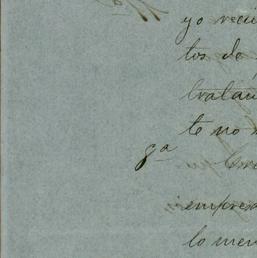 yo reci
tos de
tratan
te no
8ª
empres
lo men